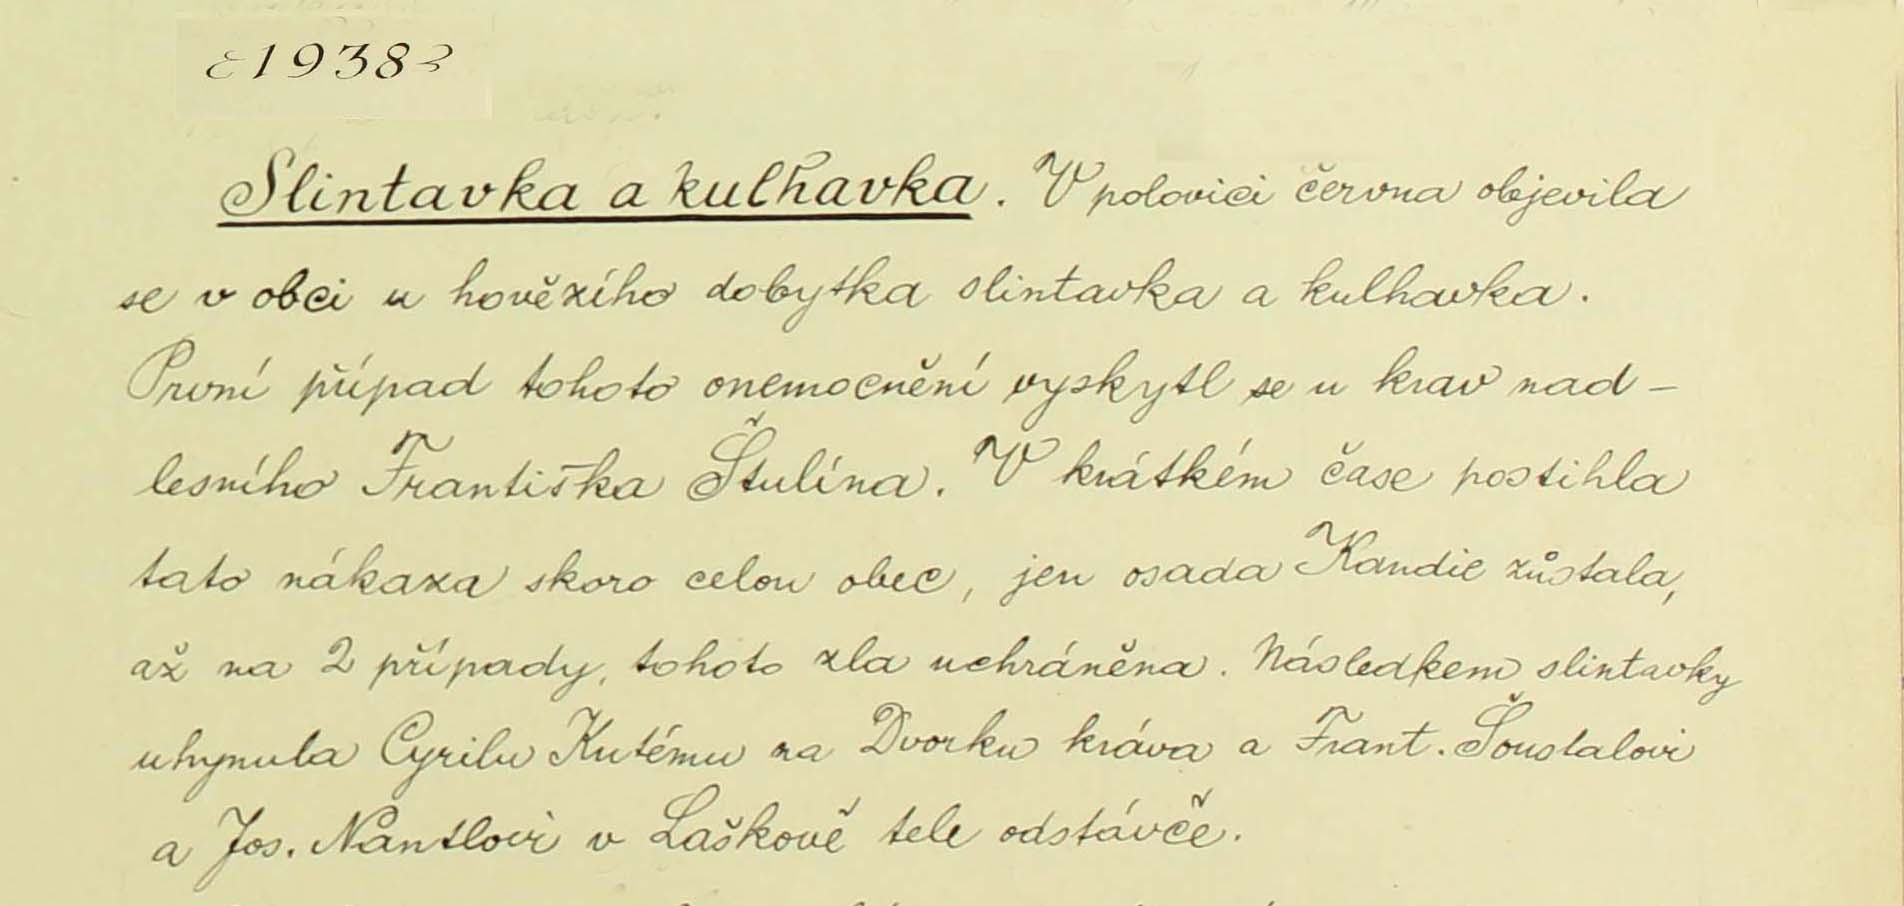 1938
Slintavka a kulhavka. V polovici června objevila
se v obci u hovězího dobytka slintavka a kulhavka.
První případ tohoto onemocnění vyskytl se u krav nad-
lesního Františka Štulína. V krátkém čase postihla
tato nákaza skoro celou obec, jen osada Kandie zůstala,
až na 2 případy, tohoto zla uchráněna. Následkem slintavky
uhynula Cyrilu Kutému na Dvorku kráva a Frant. Šoustalovi
a Jos. Nantlovi v Laškově tele odstávče.